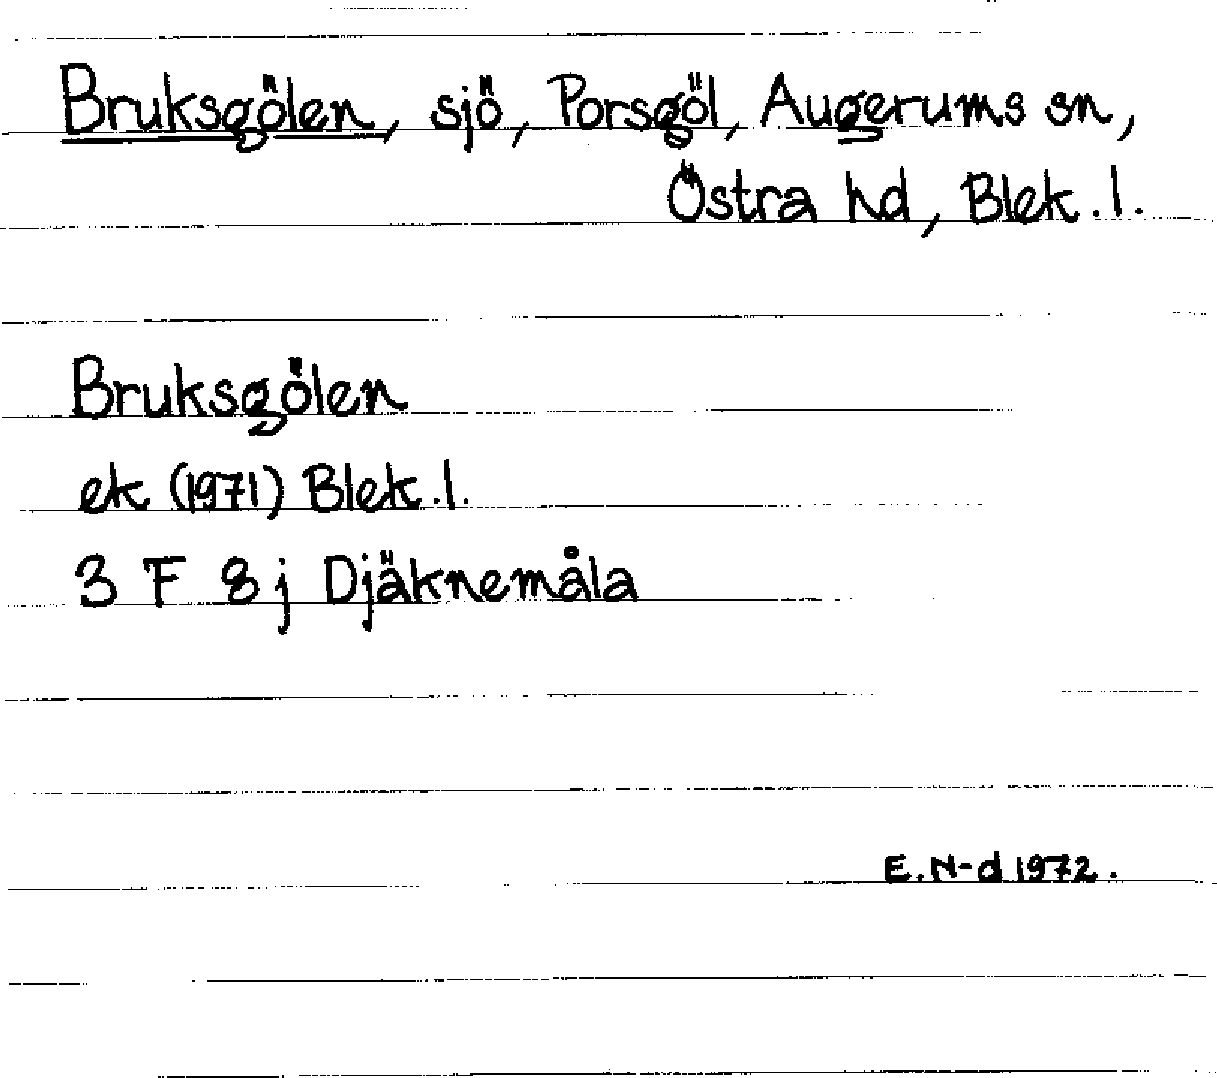 Bruksgölen, sjö, Porsgöl, Augerums sn,
Östra hd, Blek. l.
Bruksgölen
ek (1971) Blek. l.
3 F 8 j Djäknemåla
E. N-d 1972.